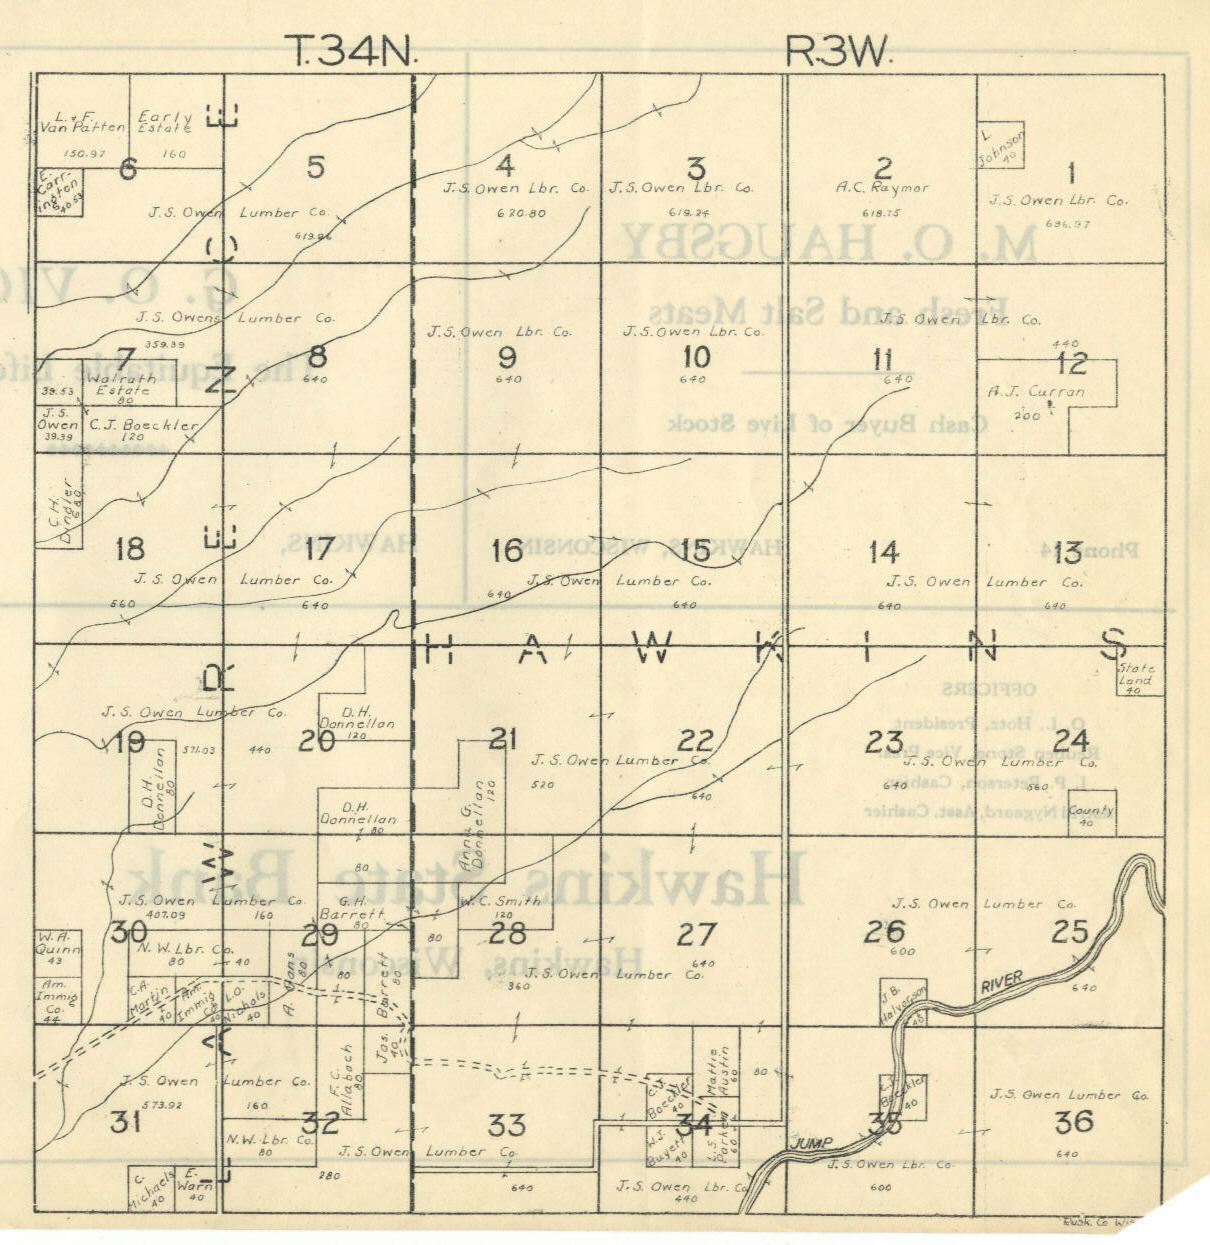 T.34N. R.3W.
L. & F.
Van Patten
150.97
Early
Estate
160
6
E.
Carr-
ington
40.53
5
J.S. Owen Lumber Co.
4
J.S. Owen Lbr. Co.
620.80
3
J.S. Owen Lbr. Co.
619.24
2
A.C. Raymor
618.75
L
Johnson
40
1
J.S. Owen Lbr. Co.
J.S. Owens Lumber Co.
359.39
7
Walrath
Estate
80
39.53
J.S.
Owen
39.39
C.J. Boeckler
120
8
640
J.S. Owen Lbr. Co.
9
640
J.S. Owen Lbr. Co.
10
640
J.S. Owen Lbr. Co.
11
640
440
12
A.J. Curran
200
C.H.
Dingler
18
J.S. Owen Lumber Co.
560
17
640
16
J.S. Owen Lumber Co.
640
15
640
14
J.S. Owen Lumber Co.
640
13
640
LAWRENCE
HAWKINS
State
Land
40
J.S. Owen Lumber Co.
19
571.03
440
D.H.
Donnellan
80
D.H.
Donnellan
120
20
D.H.
Donnellan
80
80
21
J.S. Owen Lumber Co.
520
Anna G.
Donnellan
120
22
640
23
J.S. Owen Lumber Co.
640
24
560
County
40
J.S. Owen Lumber Co.
407.09
160
30
W.A.
Quinn
43
Am.
Immig
Co.
44
N.W. Lbr. Co.
80
40
C.A.
Martin
40
Am.
Immig
Co.
40
L.O.
Nichols
40
G.H.
Barrett
80
29
A. Gans
80
80
Jas. Barrett
80
40
80
W.C. Smith
120
28
J.S. Owen Lumber Co.
360
27
640
J.S. Owen Lumber Co.
26
600
25
640
RIVER
J.B.
Halvorson
40
J.S. Owen Lumber Co.
573.92
160
31
C.
Michaels
40
E.
Warn
40
F.C.
Allabach
80
32
N.W. Lbr. Co.
80
J.S. Owen Lumber Co.
280
33
640
C.J.
Boeckler
40
Mattie
Austin
60
80
34
W.J.
Buyert
40
L.S.
Parker
60
J.S. Owen Lbr. Co.
440
C.J.
Boeckler
40
35
JUMP
J.S. Owen Lbr. Co.
600
J.S. Owen Lumber Co.
36
640
Rusk. Co
M. O. HAUGSBY
Fresh and Salt Meats
Cash Buyer of Live Stock
HAWKINS, WISCONSIN
G. O. VIC
The Equitable Life
HAWKINS,
OFFICERS
Hawkins State Bank
Hawkins, Wisconsin